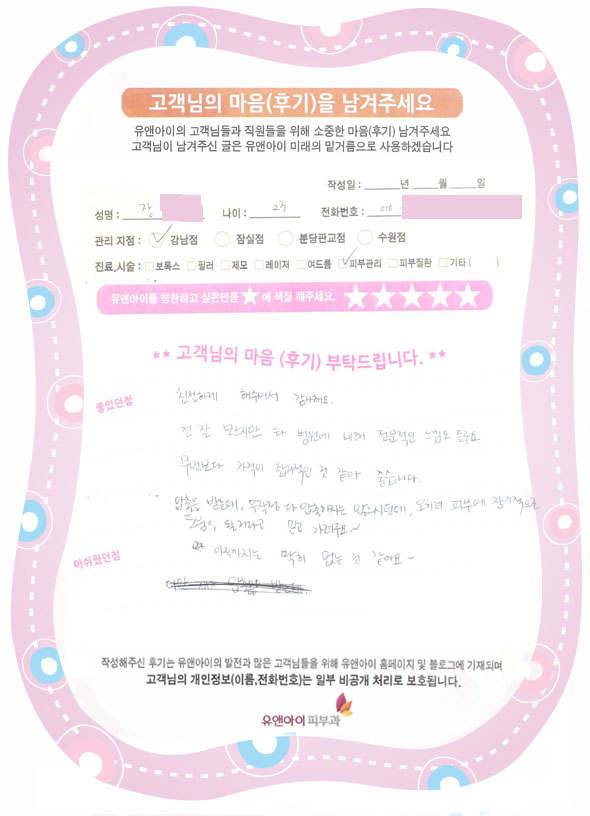 고객님의 마음(후기)을 남겨주세요
유앤아이의 고객님들과 직원들을 위해 소중한 마음(후기) 남겨주세요
고객님이 남겨주신 글은 유앤아이 미래의 밑거름으로 사용하겠습니다
작성일 : 년 월 일
성명 : 장 나이 : 23 전화번호 : 010
관리 지점 : 강남점 잠실점 분당판교점 수원점
진료,시술 : 보톡스 필러 제모 레이저 여드름 피부관리 피부질환 기타 ( )
유앤아이를 칭찬하고 싶은만큼 ★ 에 색칠 해주세요. ★★★★★
** 고객님의 마음 (후기) 부탁드립니다. **
좋았던점
친절하게 해주셔서 감사해요.
전 잘 모르지만 타 병원에 비해 전문적인 느낌도 들구요
무엇보다 가격이 합리적인 것 같아 좋습니다.
압출을 받는데, 무작정 다 압출하지는 않으시던데, 오히려 피부에 장기적으로
도움이 될거라고 믿고 가려구요~
아쉬웠던점
아직까지는 딱히 없는 것 같아요~
작성해주신 후기는 유앤아이의 발전과 많은 고객님들을 위해 유앤아이 홈페이지 및 블로그에 기재되며
고객님의 개인정보(이름,전화번호)는 일부 비공개 처리로 보호됩니다.
유앤아이피부과